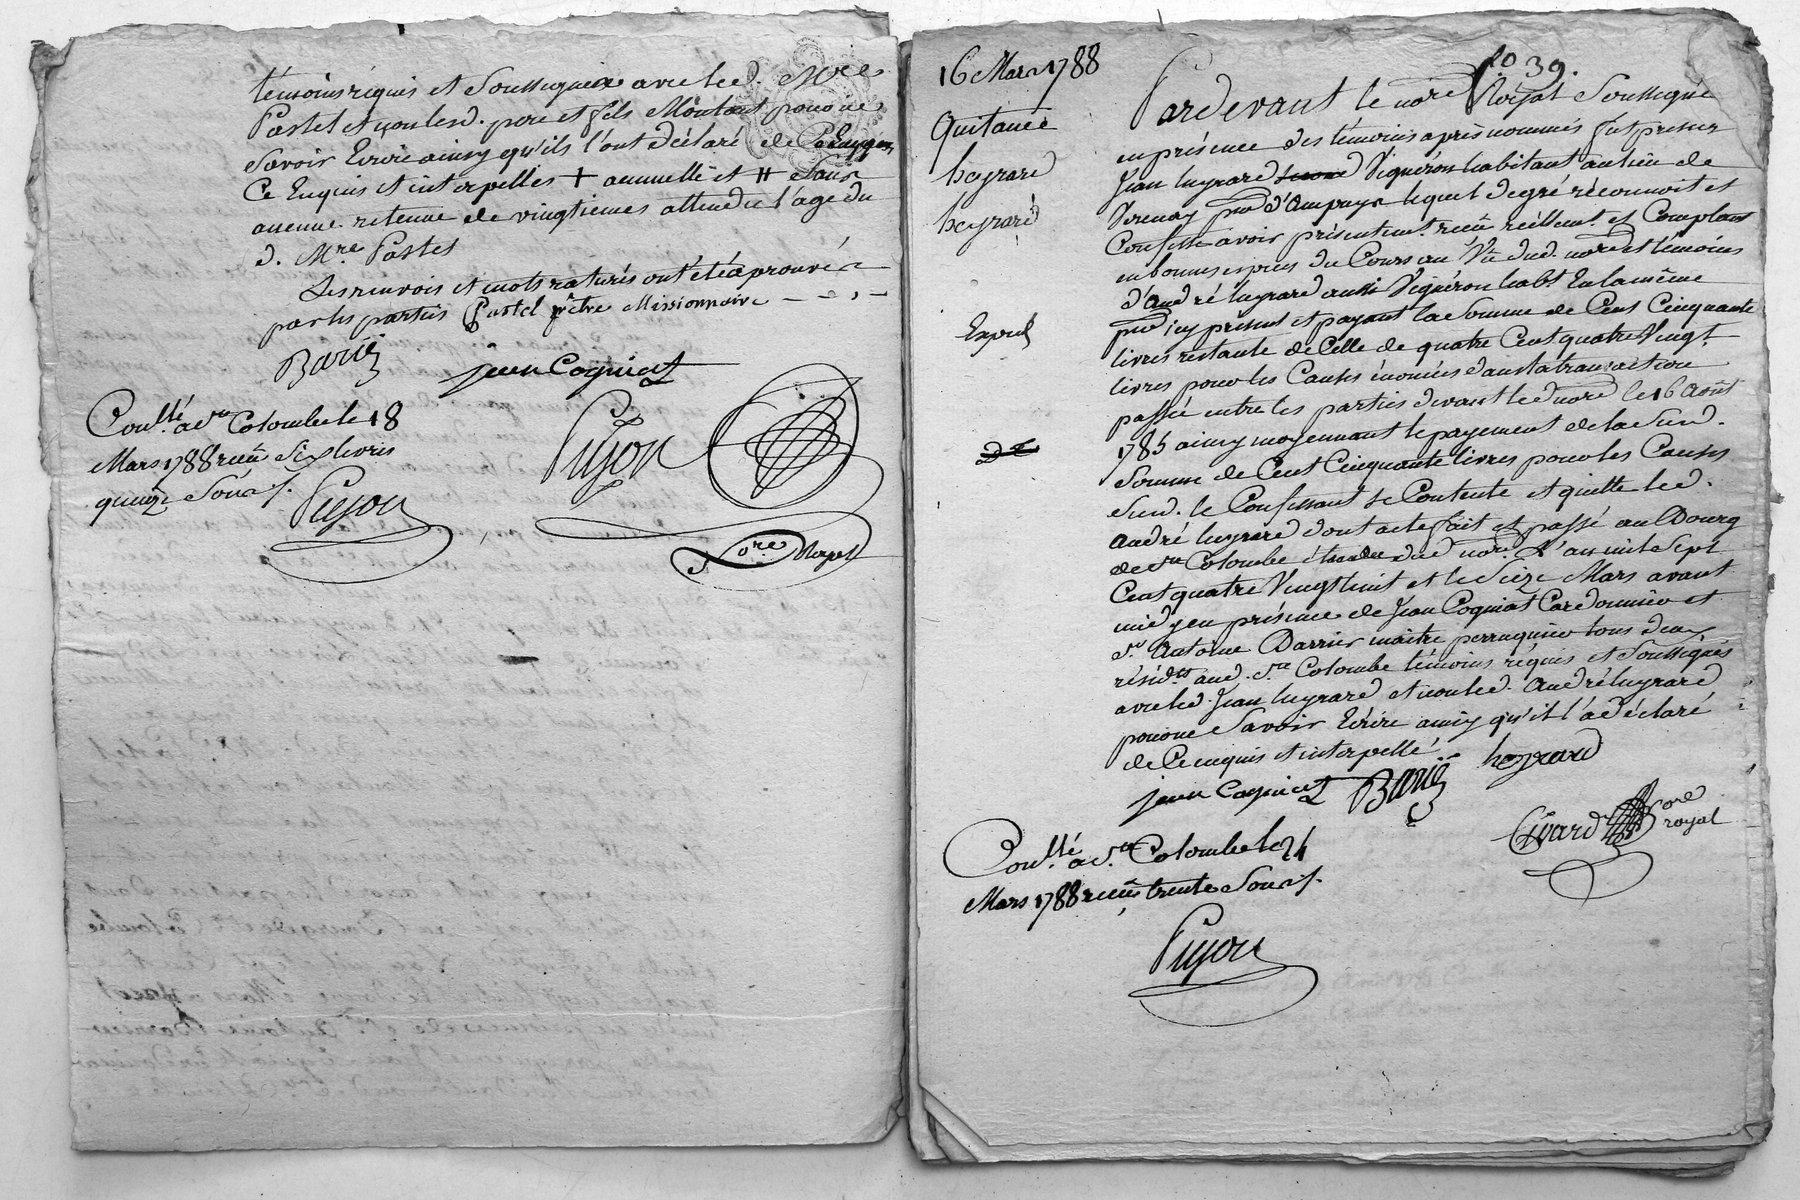 témoins réquis et Soussignés avec led. Mre
Pastel et non lesd. pere et fils Montant pour ne
Savoir Ecrire ainsy qu'ils l'ont déclaré de
Ce Enquis et interpellés + annuelle et ++ Sans
aucune retenue de vingtiemes attendu l'age du
d. Mre Pastel
Les renvois et mots raturés ont été aprouvés
par les parties Pastel prêtre Missionnaire
Barié
jean Cogniat
Coullé a Ste Colombe le 18
Mars 1788 reçu Six livres
quinze Sous
Pujon
Pujon
Nore Royal
fo 39.
16 Mars 1788
Quitance
heyrard
heyrard
Expéd
Pardevant le nore Royal Soussigné
en présence des témoins après nommés fut present
Jean heyrard Vigneron habitant au lieu de
Verenay psse d'Ampuys lequel de gré réconnoit et
Confesse avoir présentemt. reçu réellemt. et Comptant
en bonnes espèces du Cours au Vu dud. nore et témoins
d'André heyrard aussi Vigneron habt. En la même
psse icy présent et payant la Somme de Cent Cinquante
livres restante de Celle de quatre Cent quatre Vingt
livres pour les Causes énoncées dans la transaction
passée entre les parties devant led. nore le 16 Août
1785 ainsy moyennant le payement de la Susd.
Somme de Cent Cinquante livres pour les Causes
Susd. le Confessant se Contente et quitte led.
André heyrard dont acte fait et passé au Bourg
de Ste Colombe étude dud. nore. L'an mil Sept
Cent quatre Vingt huit et le Seize Mars avant
midy en présence de Jean Cogniat Cordonnier et
Sr. Antoine Barrier maitre perruquier tous deux
résidts. aud. Ste Colombe témoins réquis et Soussignés
avec led. Jean heyrard et non led. André heyrard
pour ne Savoir Ecrire ainsy qu'il l'a déclaré
de Ce enquis et interpellé
jean Cogniat Barié heyrard
Girard nore
royal
Coullé a Ste Colombe le 24
Mars 1788 reçu trente Sous
Pujon